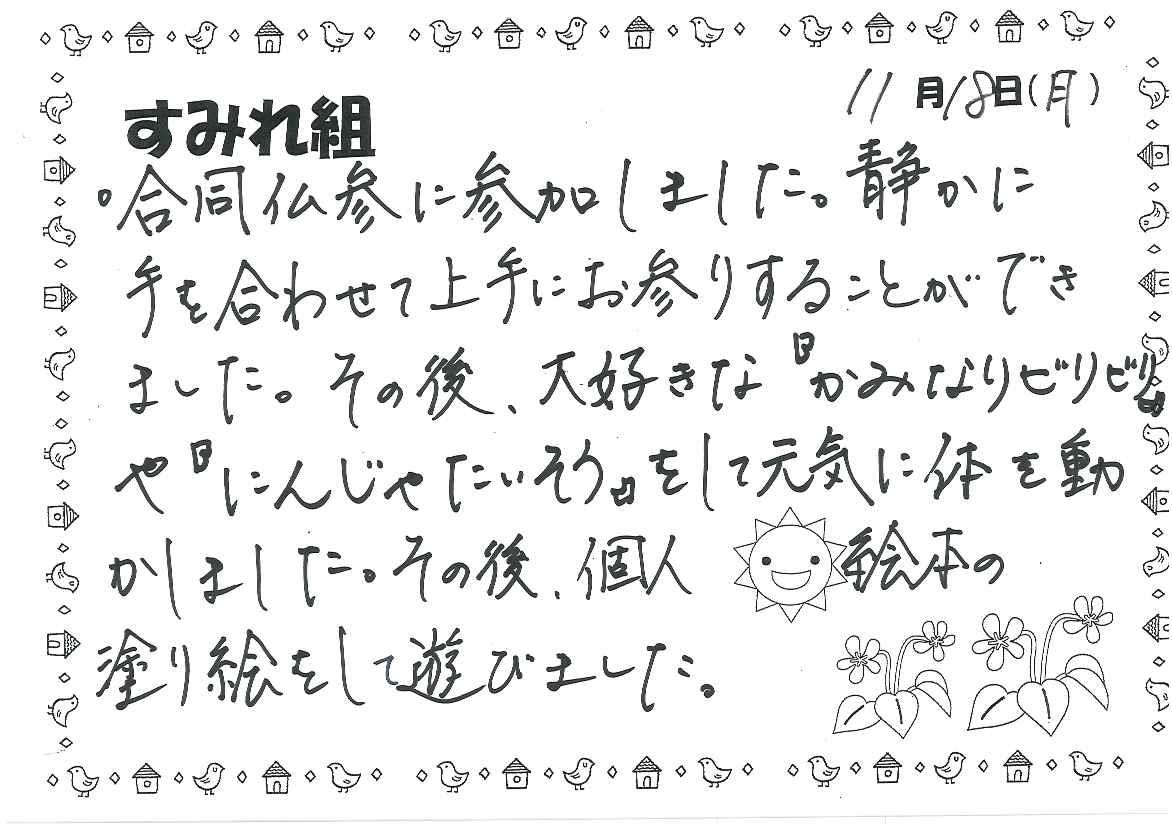 11月18日(月)
すみれ組
。合同仏参に参加しました。静かに
手を合わせて上手にお参りすることができ
ました。その後、大好きな『かみなりビリビリ』
や『にんじゃたいそう』をして元気に体を動
かしました。その後、個人絵本の
塗り絵をして遊びました。